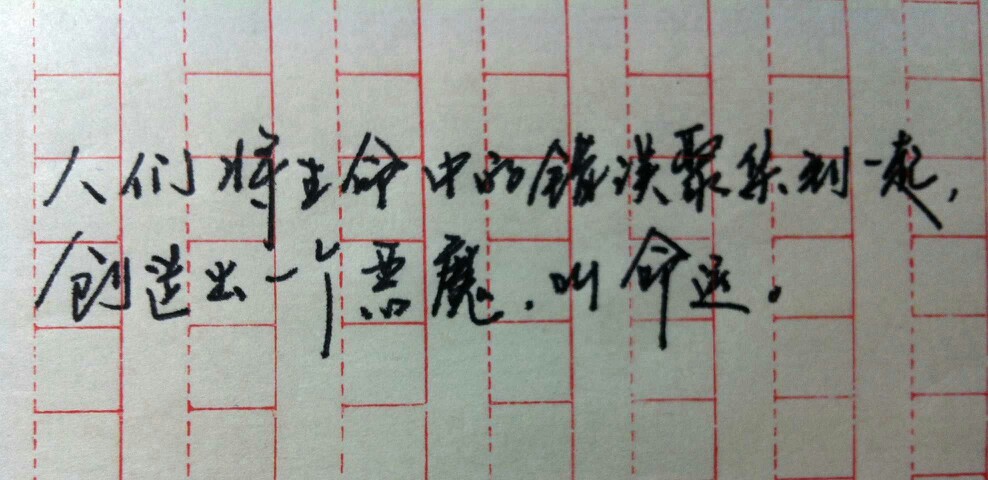 人们将生命中的错误聚集到一起，
创造出一个恶魔，叫命运。